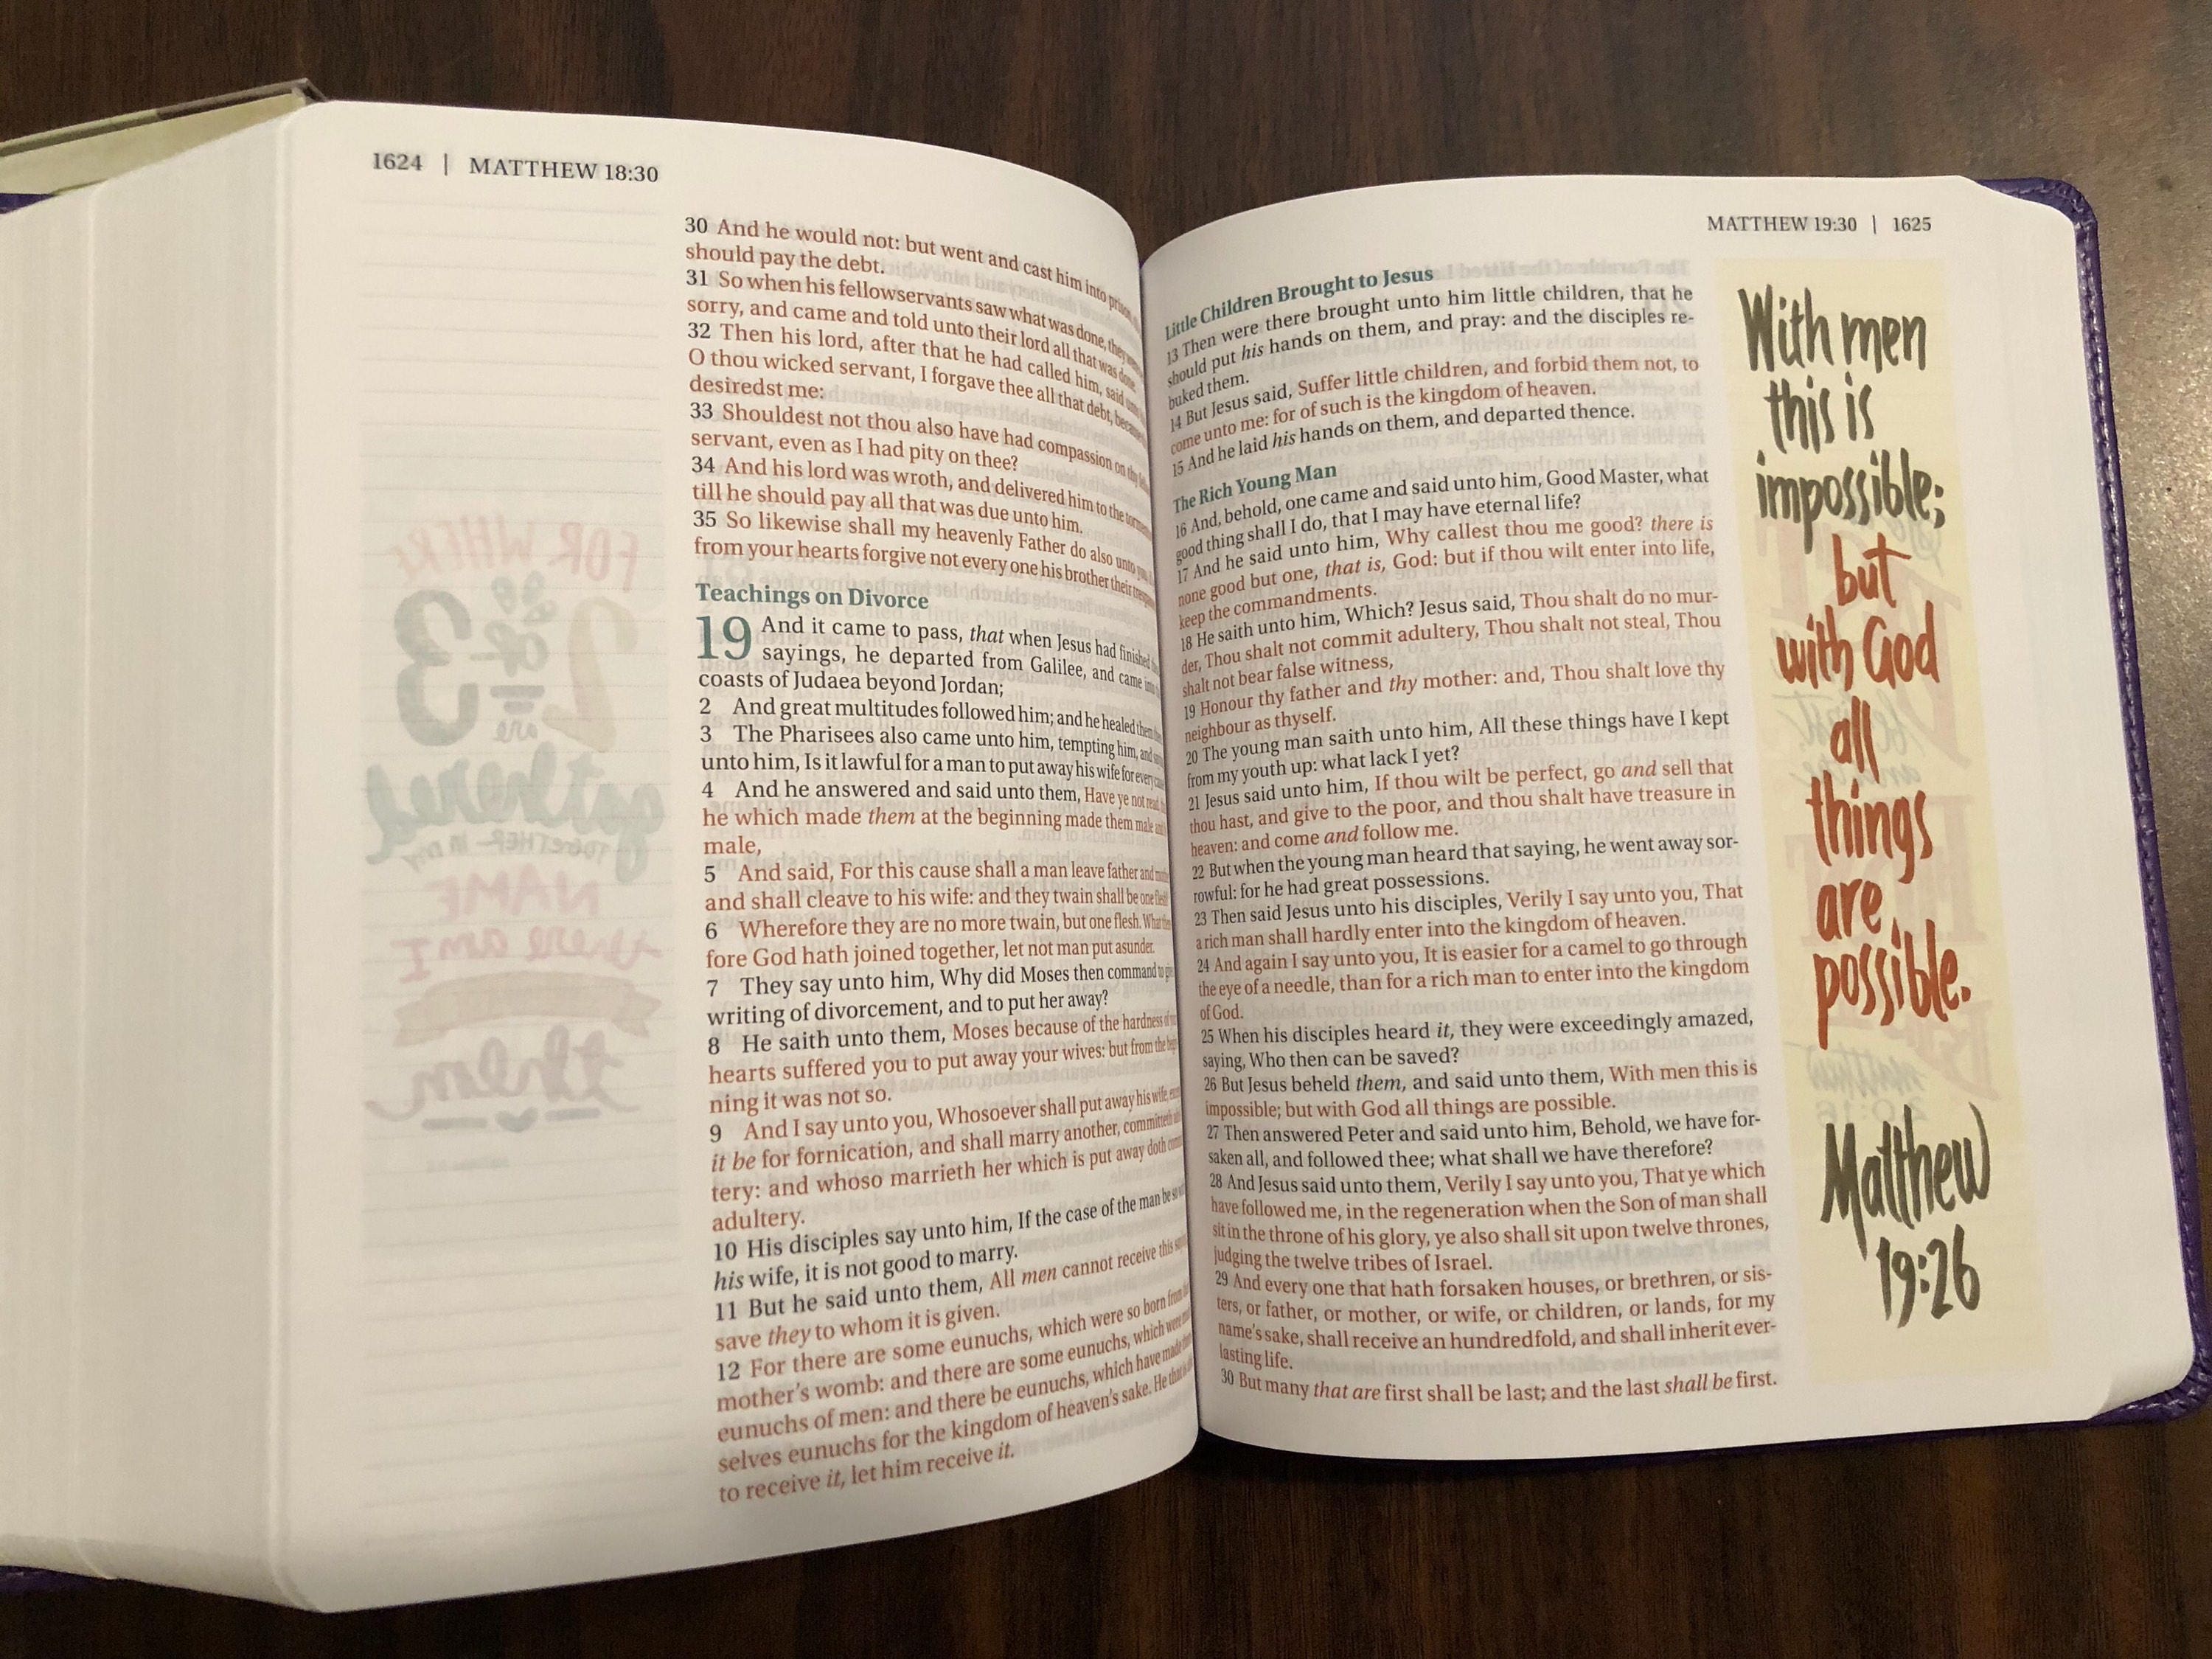 1624 | MATTHEW 18:30
30 And he would not: but went and cast him into prison,
should pay the debt.
31 So when his fellowservants saw what was done, they
sorry, and came and told unto their lord all that was done.
32 Then his lord, after that he had called him, said
O thou wicked servant, I forgave thee all that debt,
desiredst me:
33 Shouldest not thou also have had compassion on thy
servant, even as I had pity on thee?
34 And his lord was wroth, and delivered him to the
till he should pay all that was due unto him.
35 So likewise shall my heavenly Father do also unto
from your hearts forgive not every one his brother their
Teachings on Divorce
19 And it came to pass, that when Jesus had finished
sayings, he departed from Galilee, and came
coasts of Judaea beyond Jordan;
2 And great multitudes followed him; and he healed them
3 The Pharisees also came unto him, tempting him, and
unto him, Is it lawful for a man to put away his wife for every
4 And he answered and said unto them, Have ye not read,
he which made them at the beginning made them male
male,
5 And said, For this cause shall a man leave father and
and shall cleave to his wife: and they twain shall be one
6 Wherefore they are no more twain, but one flesh. What
fore God hath joined together, let not man put asunder.
7 They say unto him, Why did Moses then command to
writing of divorcement, and to put her away?
8 He saith unto them, Moses because of the hardness of
hearts suffered you to put away your wives: but from the
ning it was not so.
9 And I say unto you, Whosoever shall put away his wife,
it be for fornication, and shall marry another, committeth
tery: and whoso marrieth her which is put away doth
adultery.
10 His disciples say unto him, If the case of the man be so
his wife, it is not good to marry.
11 But he said unto them, All men cannot receive this
save they to whom it is given.
12 For there are some eunuchs, which were so born from
mother's womb: and there are some eunuchs, which were
eunuchs of men: and there be eunuchs, which have made
selves eunuchs for the kingdom of heaven's sake. He that
to receive it, let him receive it.
MATTHEW 19:30 | 1625
Little Children Brought to Jesus
13 Then were there brought unto him little children, that he
should put his hands on them, and pray: and the disciples re-
buked them.
14 But Jesus said, Suffer little children, and forbid them not, to
come unto me: for of such is the kingdom of heaven.
15 And he laid his hands on them, and departed thence.
The Rich Young Man
16 And, behold, one came and said unto him, Good Master, what
good thing shall I do, that I may have eternal life?
17 And he said unto him, Why callest thou me good? there is
none good but one, that is, God: but if thou wilt enter into life,
keep the commandments.
18 He saith unto him, Which? Jesus said, Thou shalt do no mur-
der, Thou shalt not commit adultery, Thou shalt not steal, Thou
shalt not bear false witness,
19 Honour thy father and thy mother: and, Thou shalt love thy
neighbour as thyself.
20 The young man saith unto him, All these things have I kept
from my youth up: what lack I yet?
21 Jesus said unto him, If thou wilt be perfect, go and sell that
thou hast, and give to the poor, and thou shalt have treasure in
heaven: and come and follow me.
22 But when the young man heard that saying, he went away sor-
rowful: for he had great possessions.
23 Then said Jesus unto his disciples, Verily I say unto you, That
a rich man shall hardly enter into the kingdom of heaven.
24 And again I say unto you, It is easier for a camel to go through
the eye of a needle, than for a rich man to enter into the kingdom
of God.
25 When his disciples heard it, they were exceedingly amazed,
saying, Who then can be saved?
26 But Jesus beheld them, and said unto them, With men this is
impossible; but with God all things are possible.
27 Then answered Peter and said unto him, Behold, we have for-
saken all, and followed thee; what shall we have therefore?
28 And Jesus said unto them, Verily I say unto you, That ye which
have followed me, in the regeneration when the Son of man shall
sit in the throne of his glory, ye also shall sit upon twelve thrones,
judging the twelve tribes of Israel.
29 And every one that hath forsaken houses, or brethren, or sis-
ters, or father, or mother, or wife, or children, or lands, for my
name's sake, shall receive an hundredfold, and shall inherit ever-
lasting life.
30 But many that are first shall be last; and the last shall be first.
With men
this is
impossible;
but
with God
all
things
are
possible.
Matthew
19:26